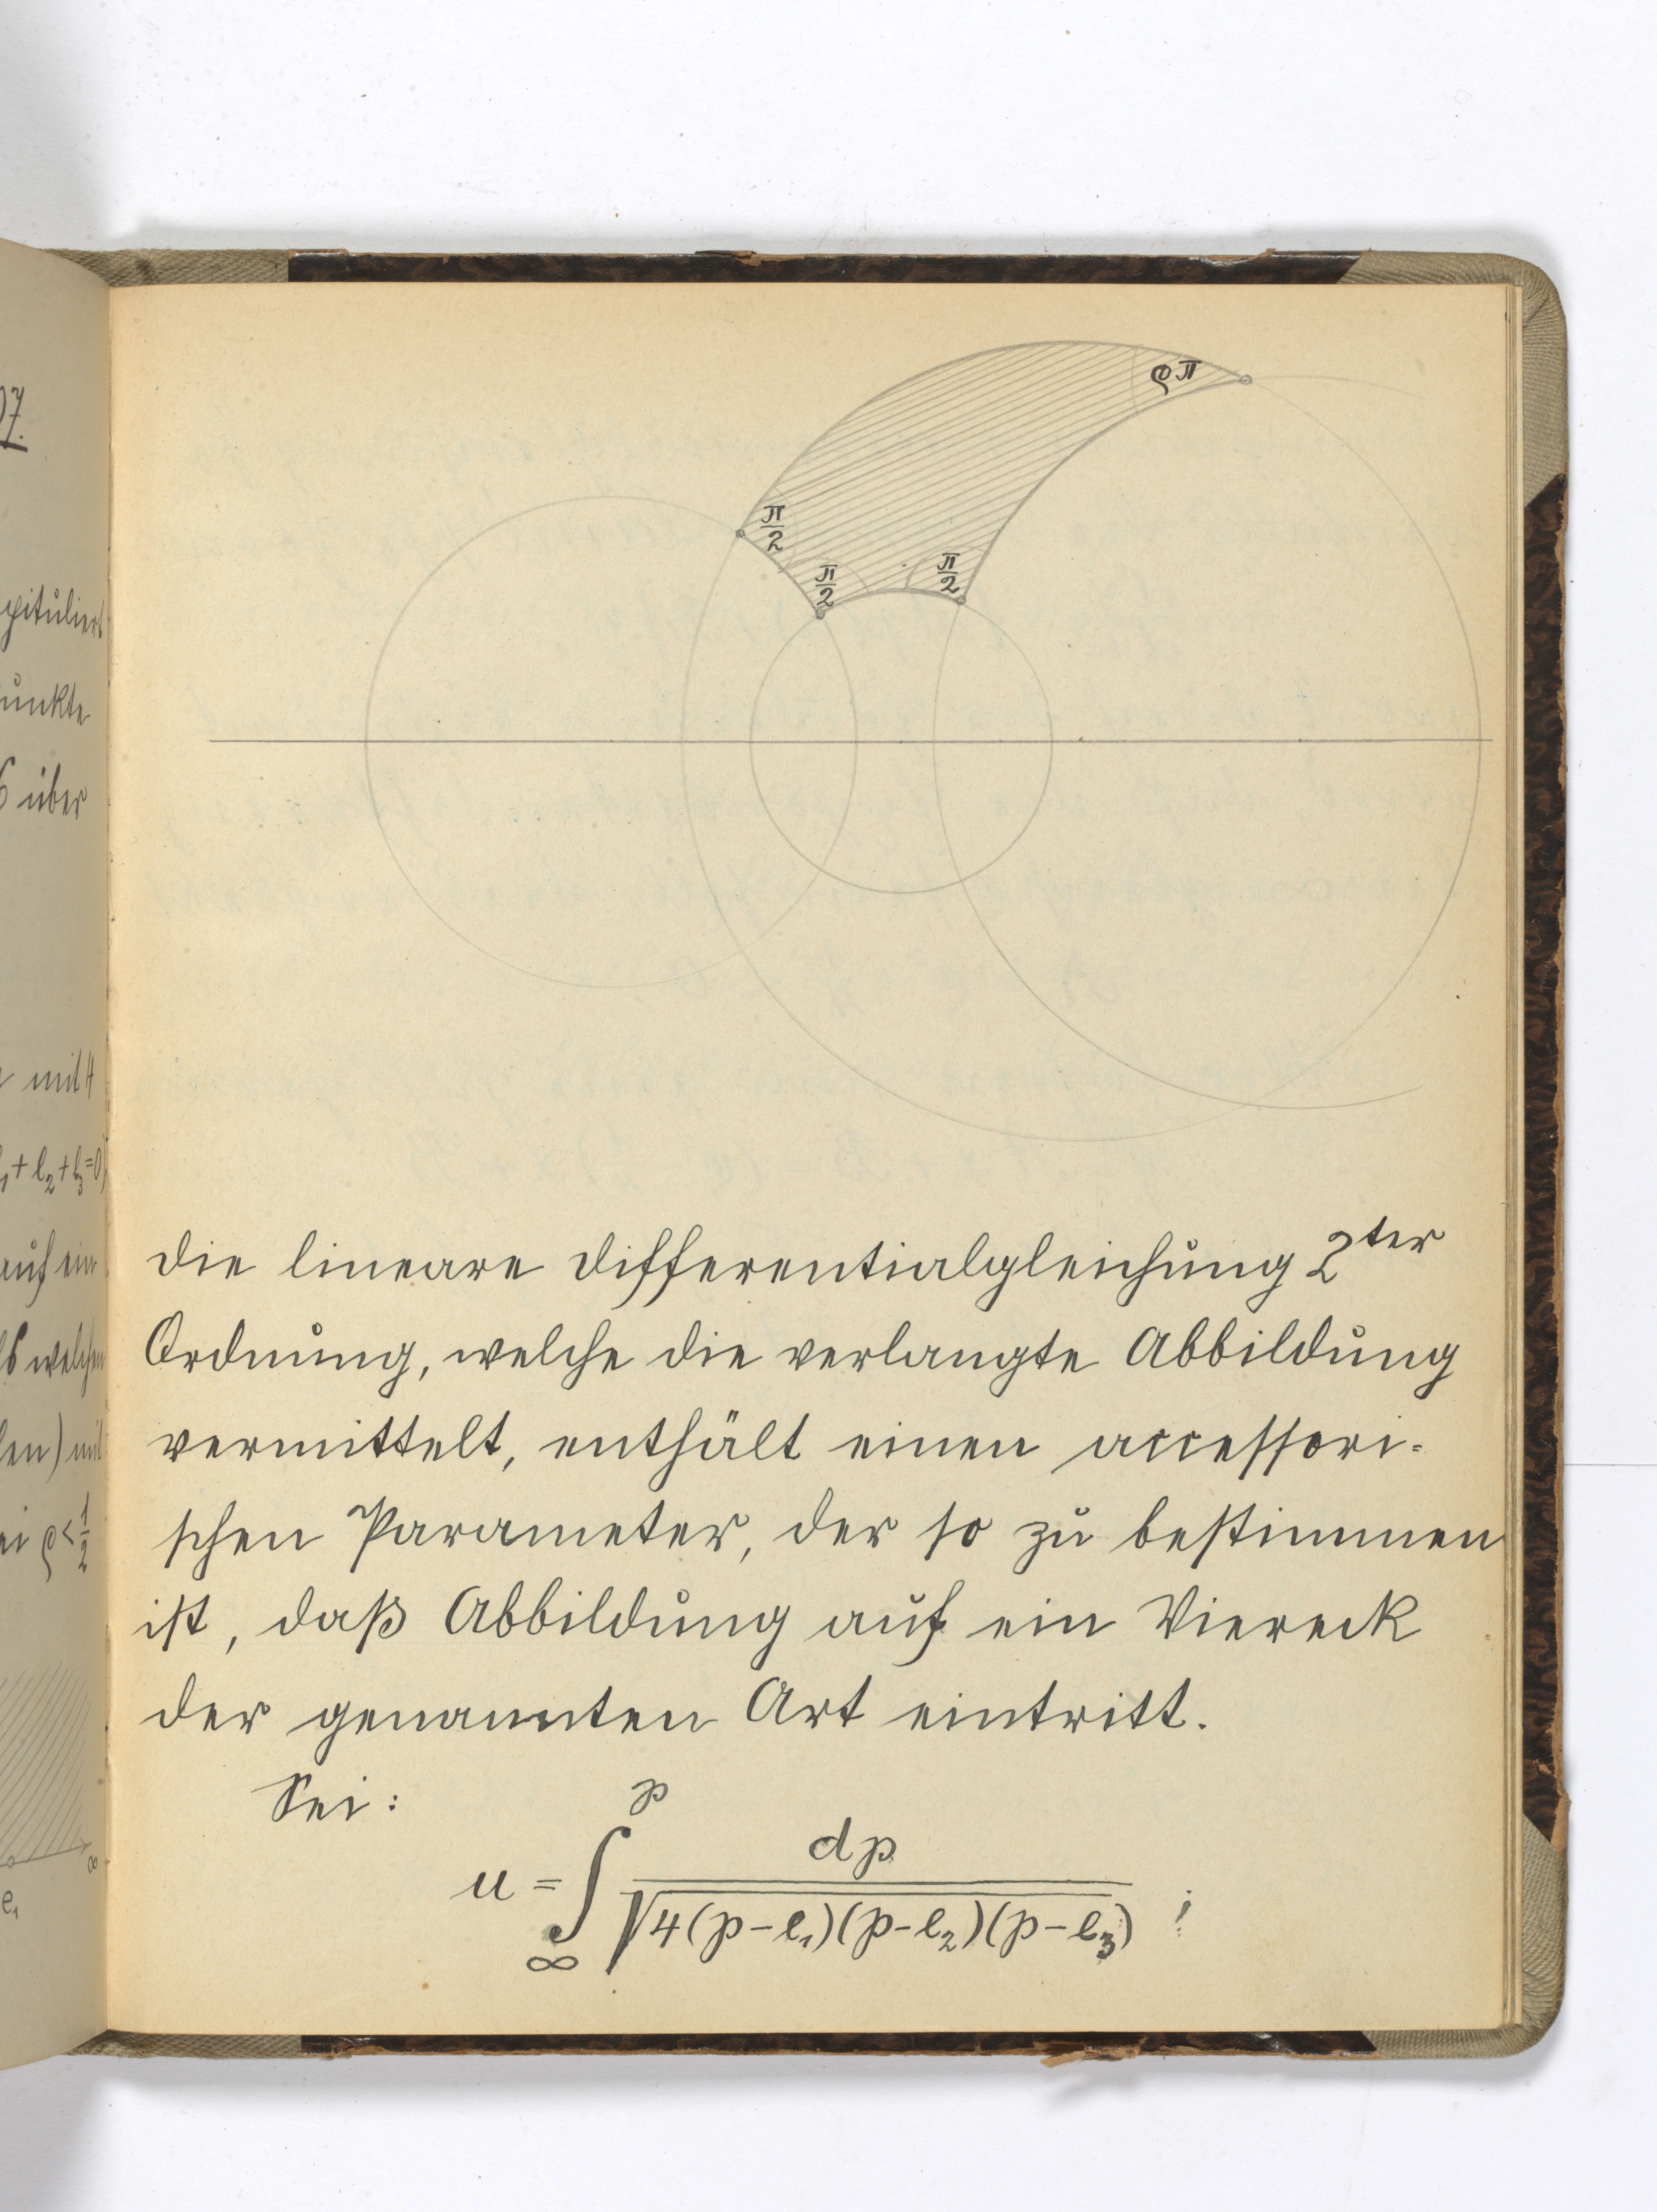 07.
pituliert
unkte
6 über
mit 4
l₁+l₂+l₃=0)
auf ein
welchen
len) mit
ei ϱ<1/2
∞
e₁
ϱπ
π/2
π/2
π/2
die lineare Differentialgleichung 2ter
Ordnung, welche die verlangte Abbildung
vermittelt, enthält einen accessori-
schen Parameter, der so zu bestimmen
ist, daß Abbildung auf ein Viereck
der genannten Art eintritt.
Sei:
u = ∫_∞^p dp / √4(p-e₁)(p-e₂)(p-e₃) ;